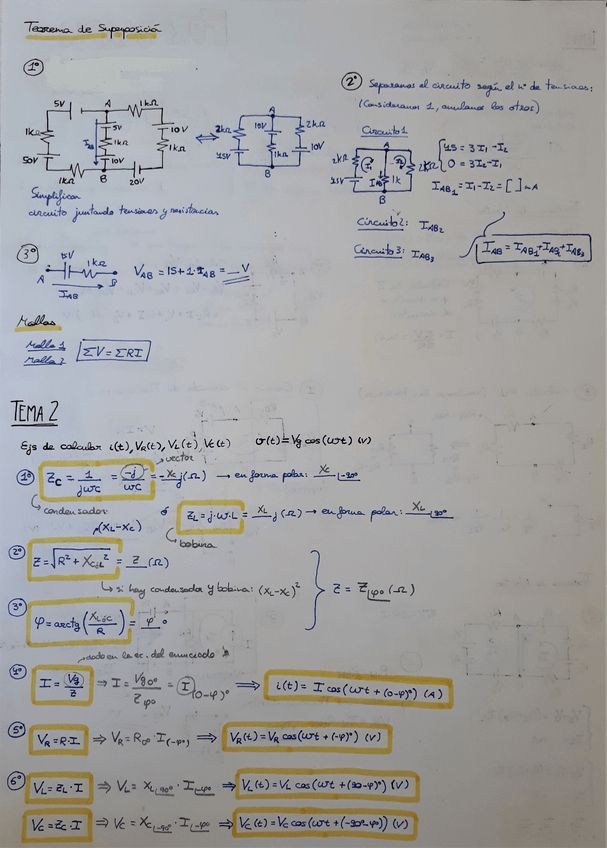 Teorema de Superposició
1º
5V
A
1kΩ
1kΩ
5V
10V
IAB
1kΩ
1kΩ
50V
10V
1kΩ
B
20V
2kΩ
10V
2kΩ
45V
1kΩ
10V
B
Simplificar
circuito juntando tensiones y resistencias
2º Separamos el circuito según el nº de tensiones:
(Consideramos 1, anulamos los otros)
Circuito 1
A
2kΩ
I1
I2
2kΩ
45V
IAB
1k
B
45 = 3I1-I2
0 = 3I2-I1
IAB1 = I1-I2 = [ ] mA
Circuito 2: IAB2
Circuito 3: IAB3
IAB = IAB1+IAB2+IAB3
3º
15V
1kΩ
A
B
IAB
VAB = 15+1·IAB = __V
Mallas
Malla 1
Malla 2
ΣV = ΣRI
TEMA 2
Ejs de calcular i(t), VR(t), VL(t), VC(t) v(t) = Vg cos(ωt) (V)
vector
1º ZC = 1/jωC = -j/ωC = -XC j(Ω) → en forma polar: XC |-90º
condensador
ó ZL = j·ω·L = XL j(Ω) → en forma polar: XL |90º
bobina
(XL-XC)
2º Z = √R² + XCóL² = Z (Ω)
si hay condensador y bobina: (XL-XC)²
Z = Z|φº (Ω)
3º φ = arctg(XLóC/R) = φ º
dado en la ec. del enunciado
4º I = Vg/Z ⇒ I = Vg 0º/Z φº = I (0-φ)º ⇒ i(t) = I cos(ωt + (0-φ)º) (A)
5º VR = R·I ⇒ VR = R 0º · I(-φº) ⇒ VR(t) = VR cos(ωt + (-φ)º) (V)
6º VL = ZL·I ⇒ VL = XL|90º · I|-φº ⇒ VL(t) = VL cos(ωt + (90-φ)º) (V)
VC = ZC·I ⇒ VC = XC|-90º · I|-φº ⇒ VC(t) = VC cos(ωt + (-90º-φº)) (V)